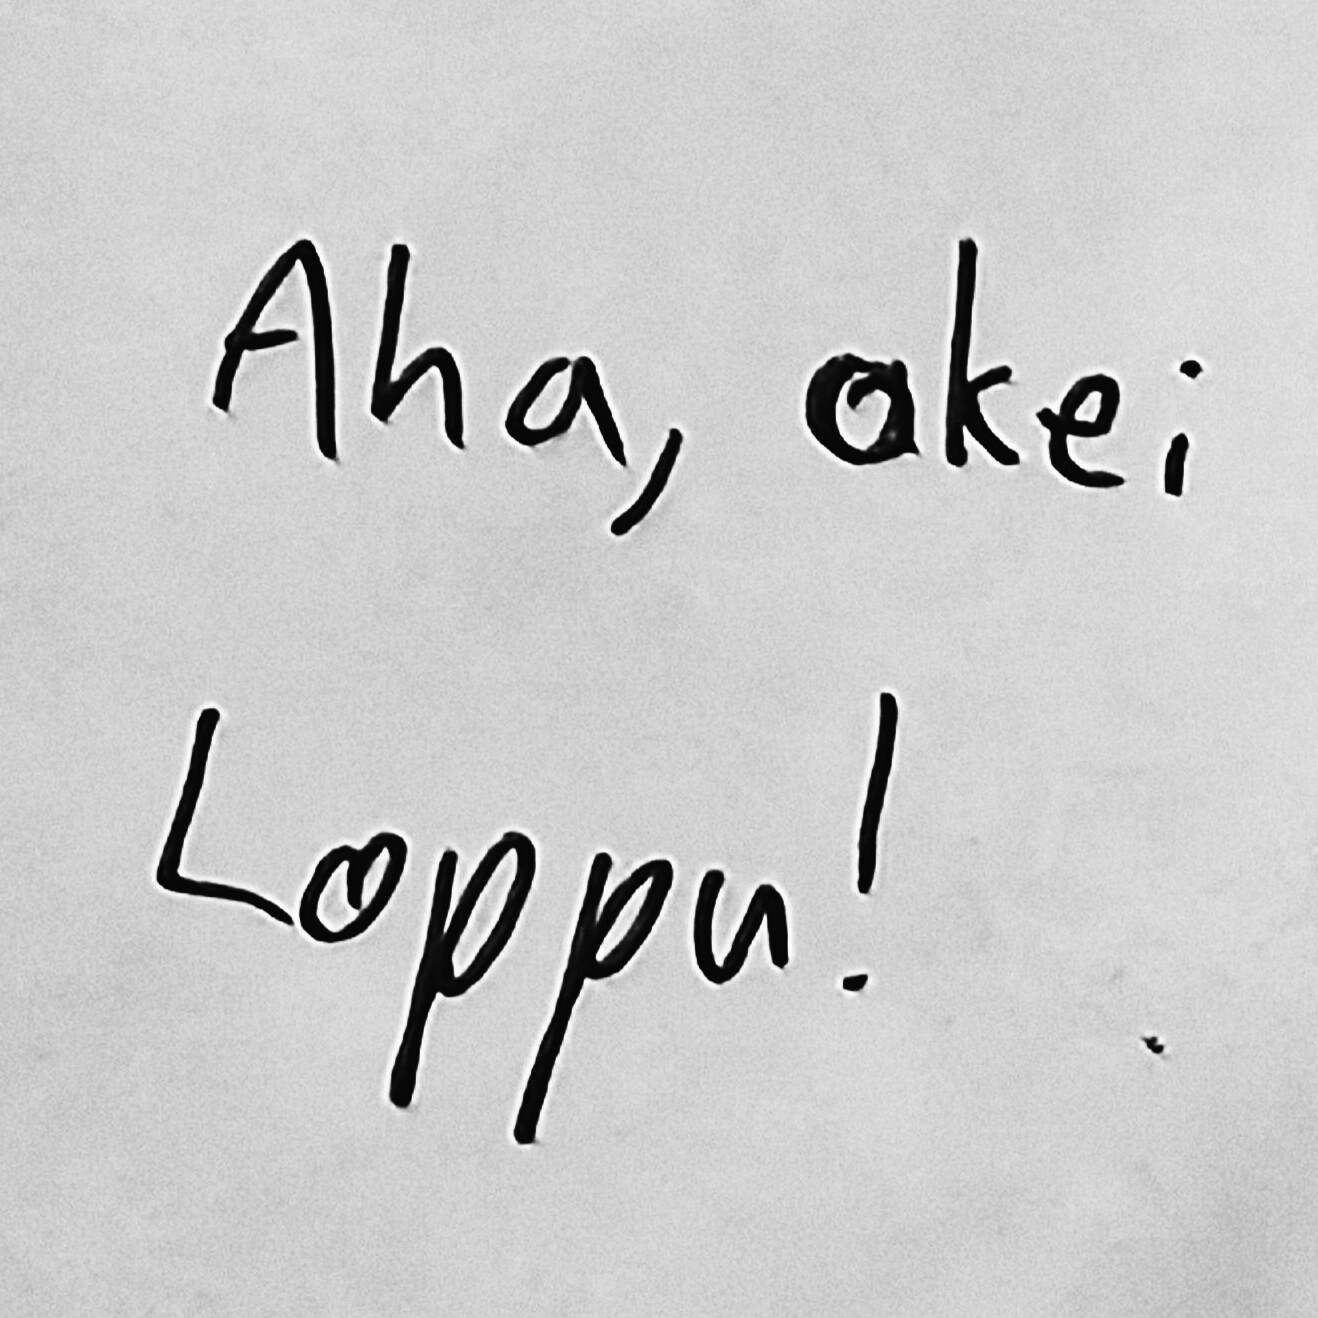 Aha, okei
Loppu!